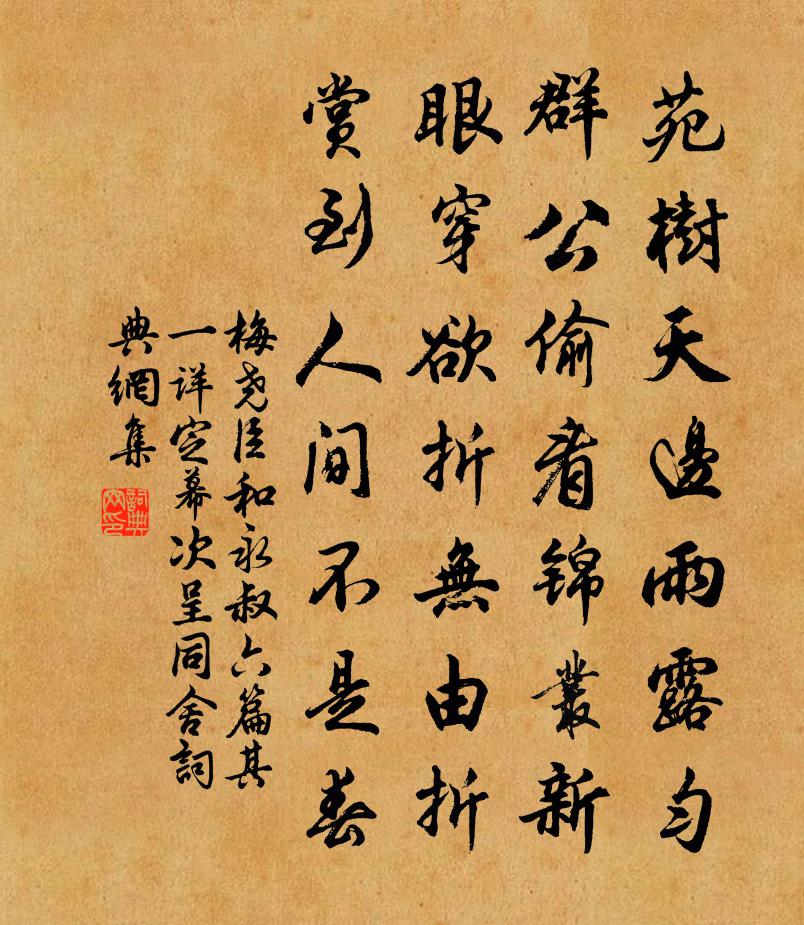 苑樹天邊雨露勻
群公偷看錦叢新
眼穿欲折無由折
賞到人間不是春
梅堯臣和永叔六篇其
一詳定幕次呈同舍詞
典網集
詞典网印